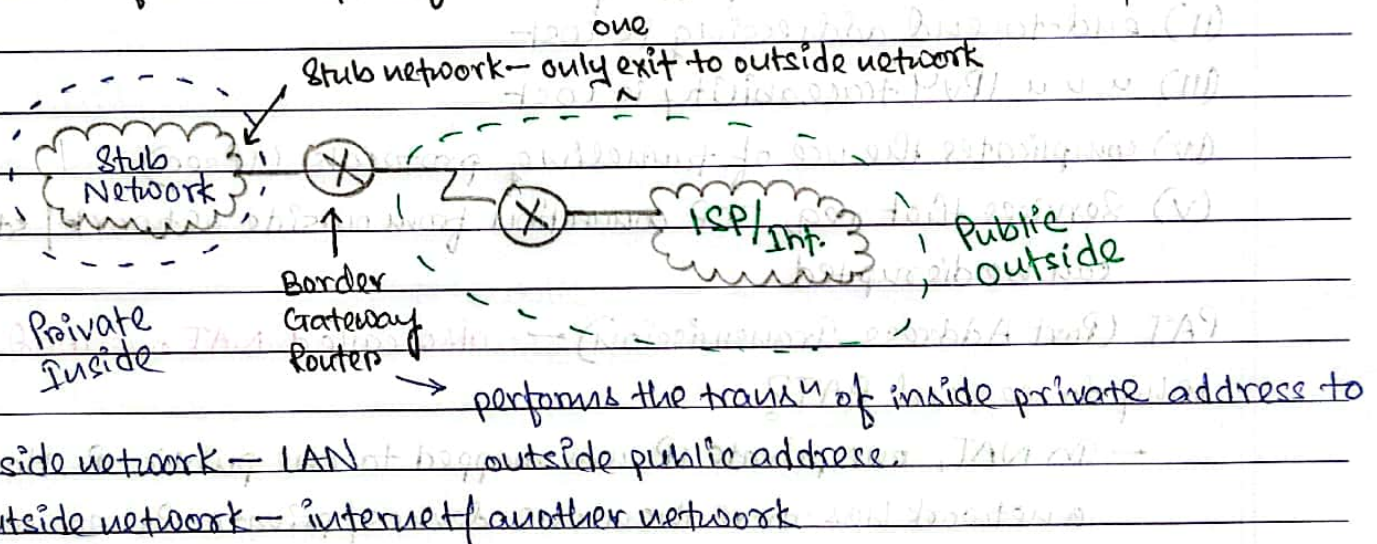 one
Stub network – only ^ exit to outside network
Stub
Network
ISP/Int.
Public
outside
Border
Gateway
Router
Private
Inside
→ performs the transn of inside private address to
side network – LAN outside public address.
tside network – internet/another network